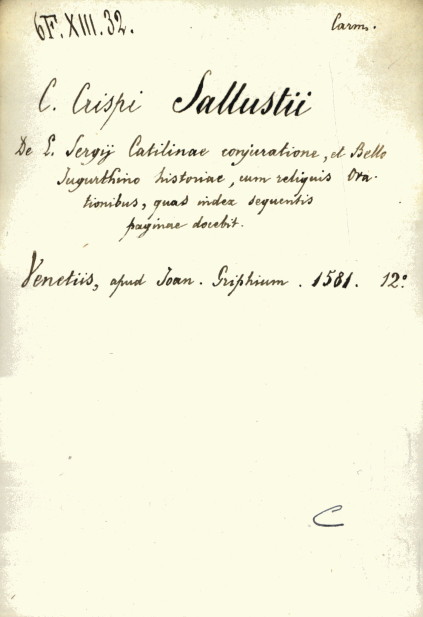 6F.XIII.32.
Carm.
C. Crispi Sallustii
De L. Sergij Catilinae conjuratione, et Bello
Jugurthino historiae, cum reliquis Ora-
tionibus, quas index sequentis
paginae docebit.
Venetiis, apud Joan. Griphium. 1581. 12°
C